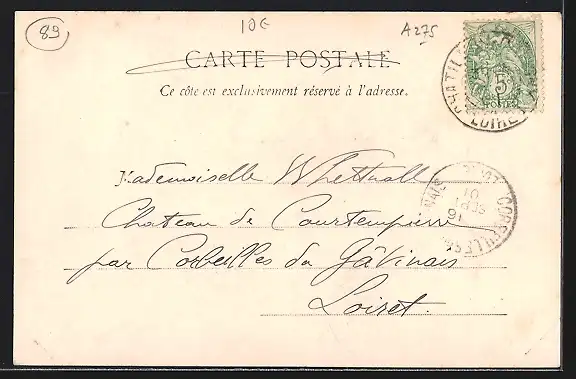 89
10€
A275
CARTE POSTALE
Ce côté est exclusivement réservé à l'adresse.
5
POSTES
CHATIL
LOIRET
Mademoiselle Whettnall
Chateau de Courtempierre
par Corbeilles du Gâtinais
Loiret.
CORBEILLES
16
SEPT
01
LOIRET